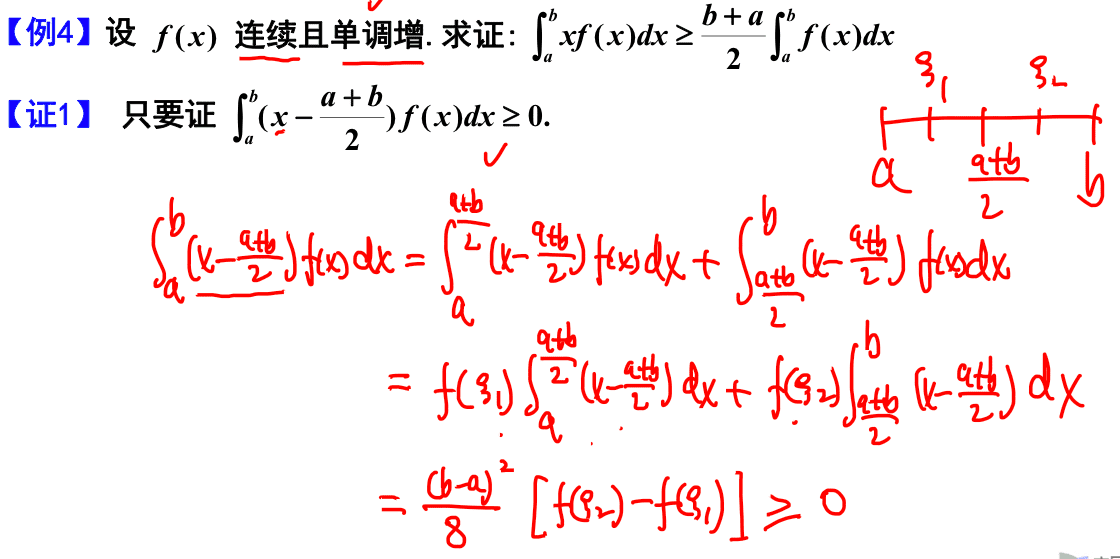 【例4】设 f(x) 连续且单调增. 求证: ∫_a^b xf(x)dx ≥ (b+a)/2 ∫_a^b f(x)dx
【证1】 只要证 ∫_a^b (x − (a+b)/2) f(x)dx ≥ 0.
ξ₁ ξ₂
a (a+b)/2 b
∫_a^b (x − (a+b)/2) f(x) dx = ∫_a^{(a+b)/2} (x − (a+b)/2) f(x) dx + ∫_{(a+b)/2}^b (x − (a+b)/2) f(x) dx
= f(ξ₁) ∫_a^{(a+b)/2} (x − (a+b)/2) dx + f(ξ₂) ∫_{(a+b)/2}^b (x − (a+b)/2) dx
= (b−a)²/8 [f(ξ₂) − f(ξ₁)] ≥ 0